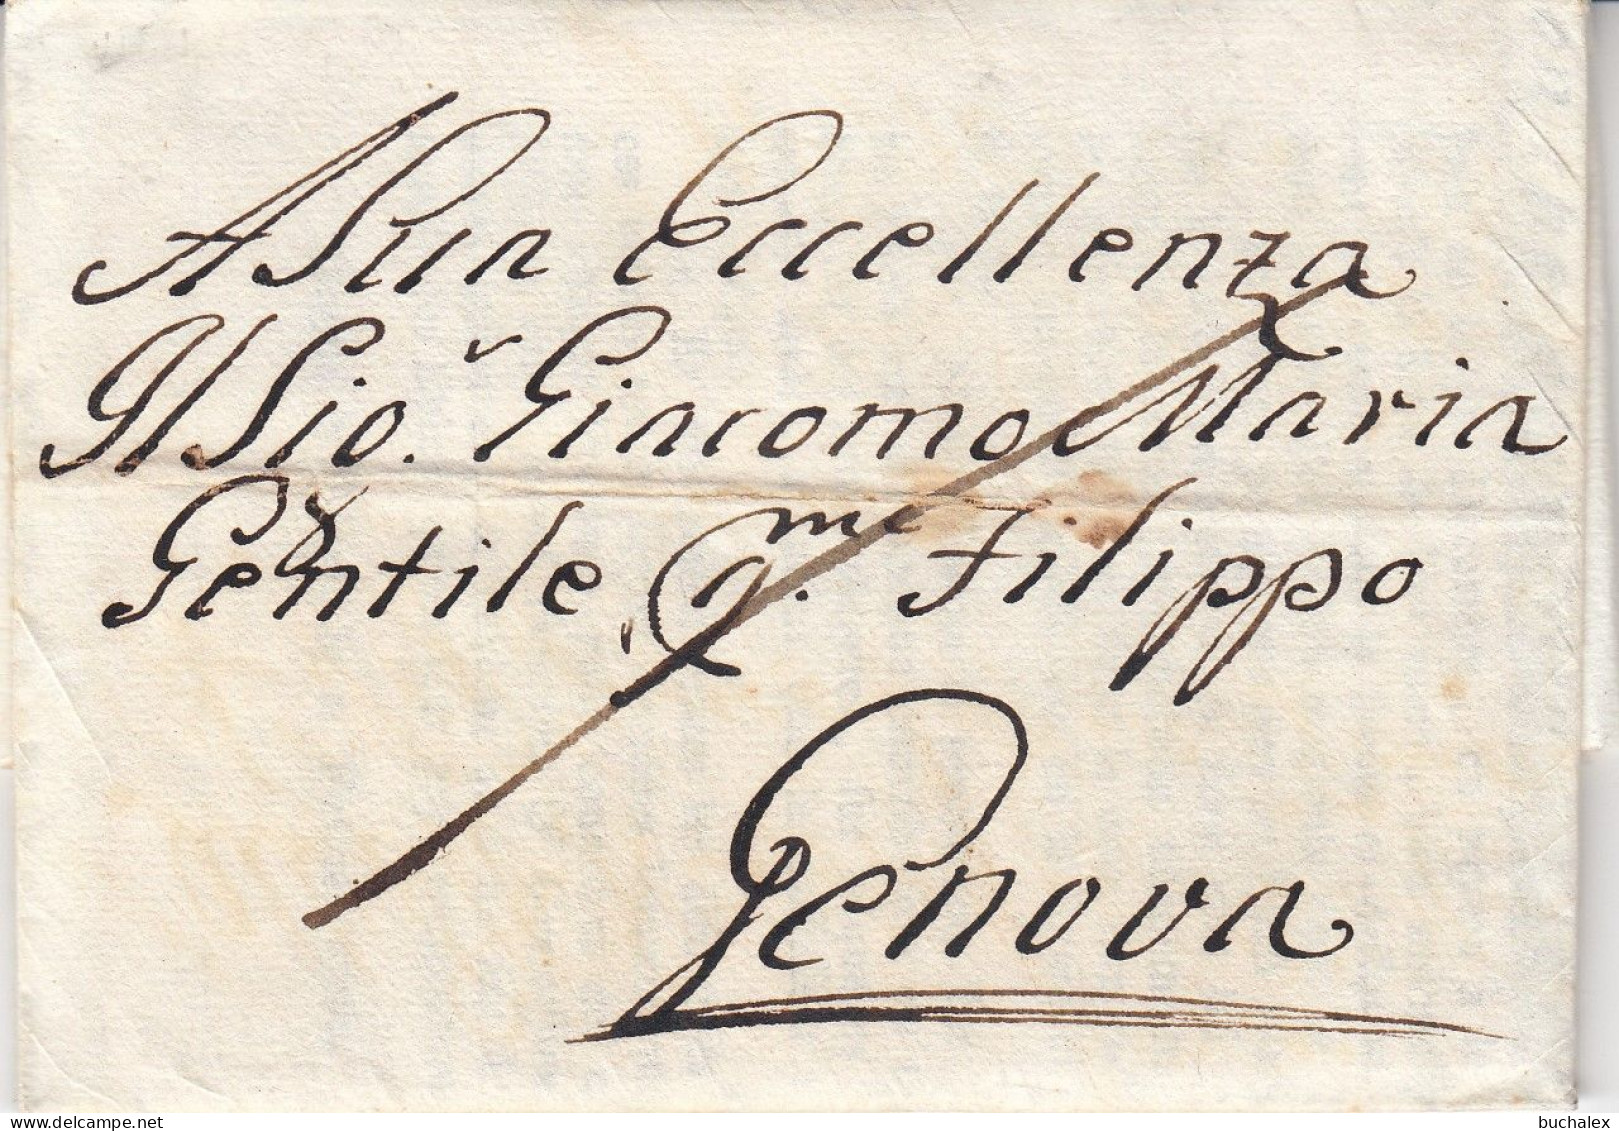 A Sua Eccellenza
Il Sio.r Giacomo Maria
Gentile q.me Filippo
Genova
buchalex